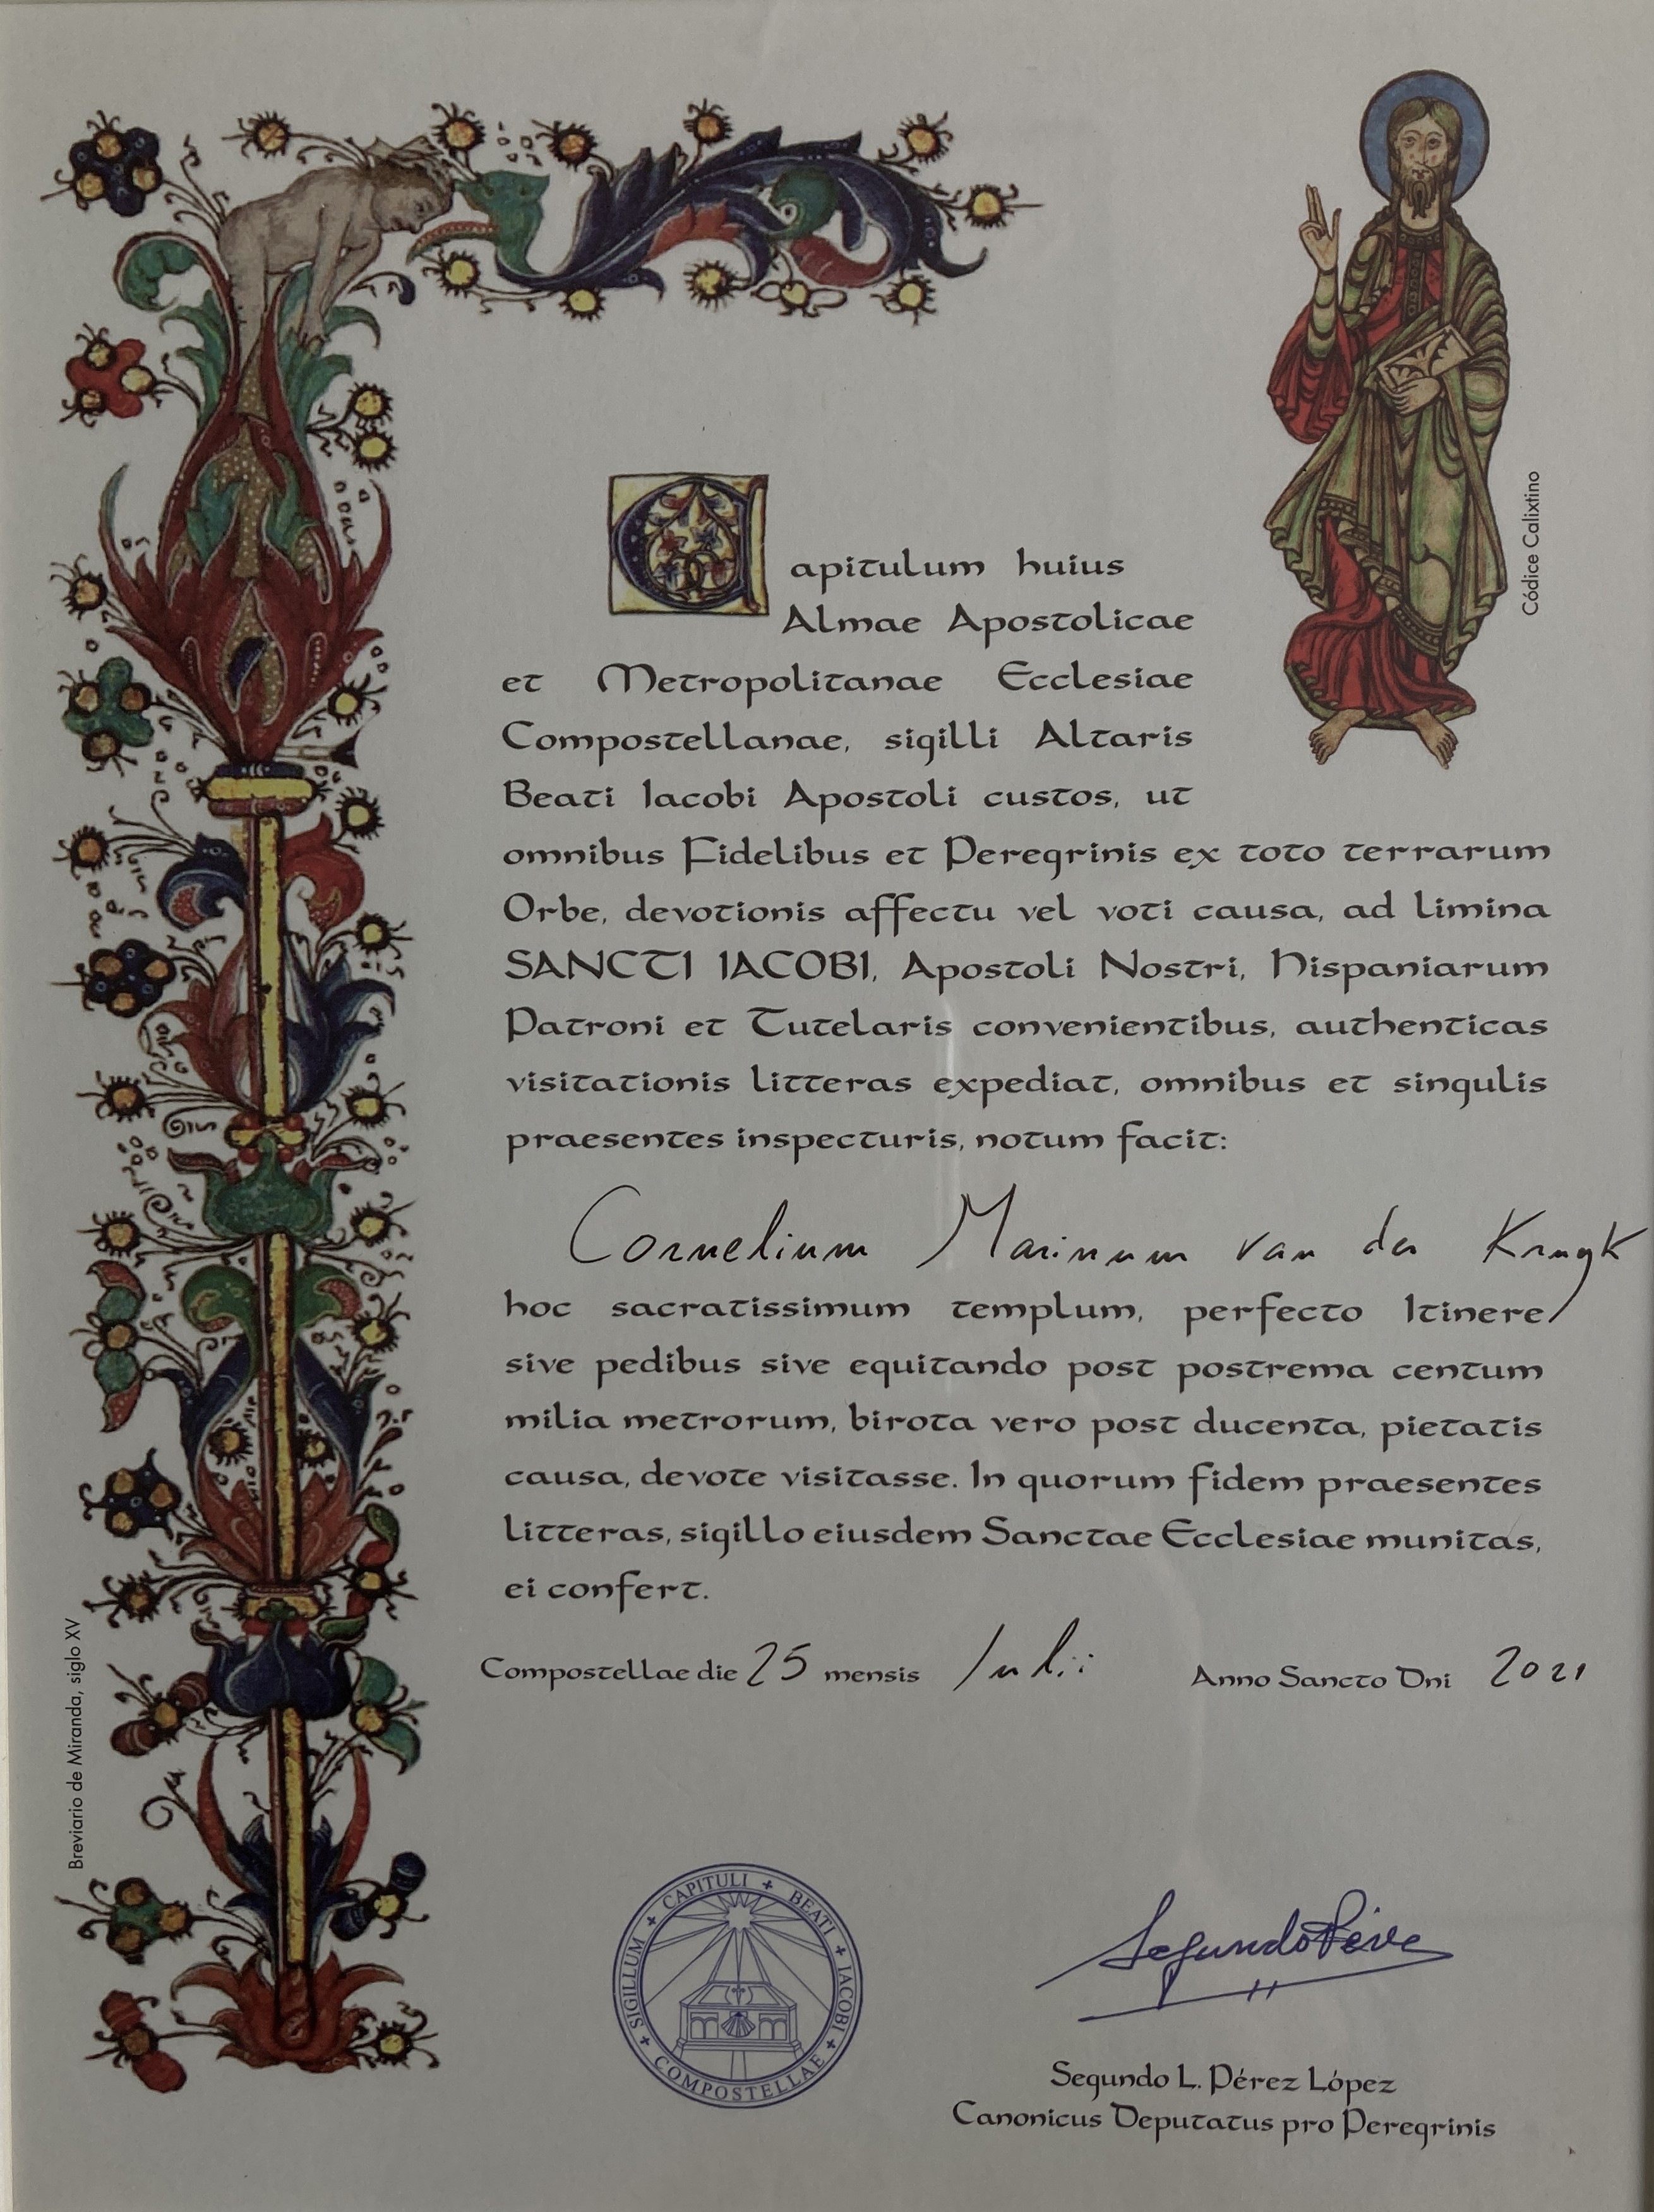 Capitulum huius
Almae Apostolicae
et Metropolitanae Ecclesiae
Compostellanae, sigilli Altaris
Beati Iacobi Apostoli custos, ut
omnibus Fidelibus et Peregrinis ex toto terrarum
Orbe, devotionis affectu vel voti causa, ad limina
SANCTI IACOBI, Apostoli Nostri, Hispaniarum
Patroni et Tutelaris convenientibus, authenticas
visitationis litteras expediat, omnibus et singulis
praesentes inspecturis, notum facit:
Cornelium Marinum van der Kruyk
hoc sacratissimum templum, perfecto Itinere
sive pedibus sive equitando post postrema centum
milia metrorum, birota vero post ducenta, pietatis
causa, devote visitasse. In quorum fidem praesentes
litteras, sigillo eiusdem Sanctae Ecclesiae munitas,
ei confert.
Compostellae die 25 mensis Iulii Anno Sancto Dni 2021
SIGILLUM + CAPITULI + BEATI + IACOBI + COMPOSTELLAE +
Segundo Pérez
Segundo L. Pérez López
Canonicus Deputatus pro Peregrinis
Códice Calixtino
Breviario de Miranda, siglo XV